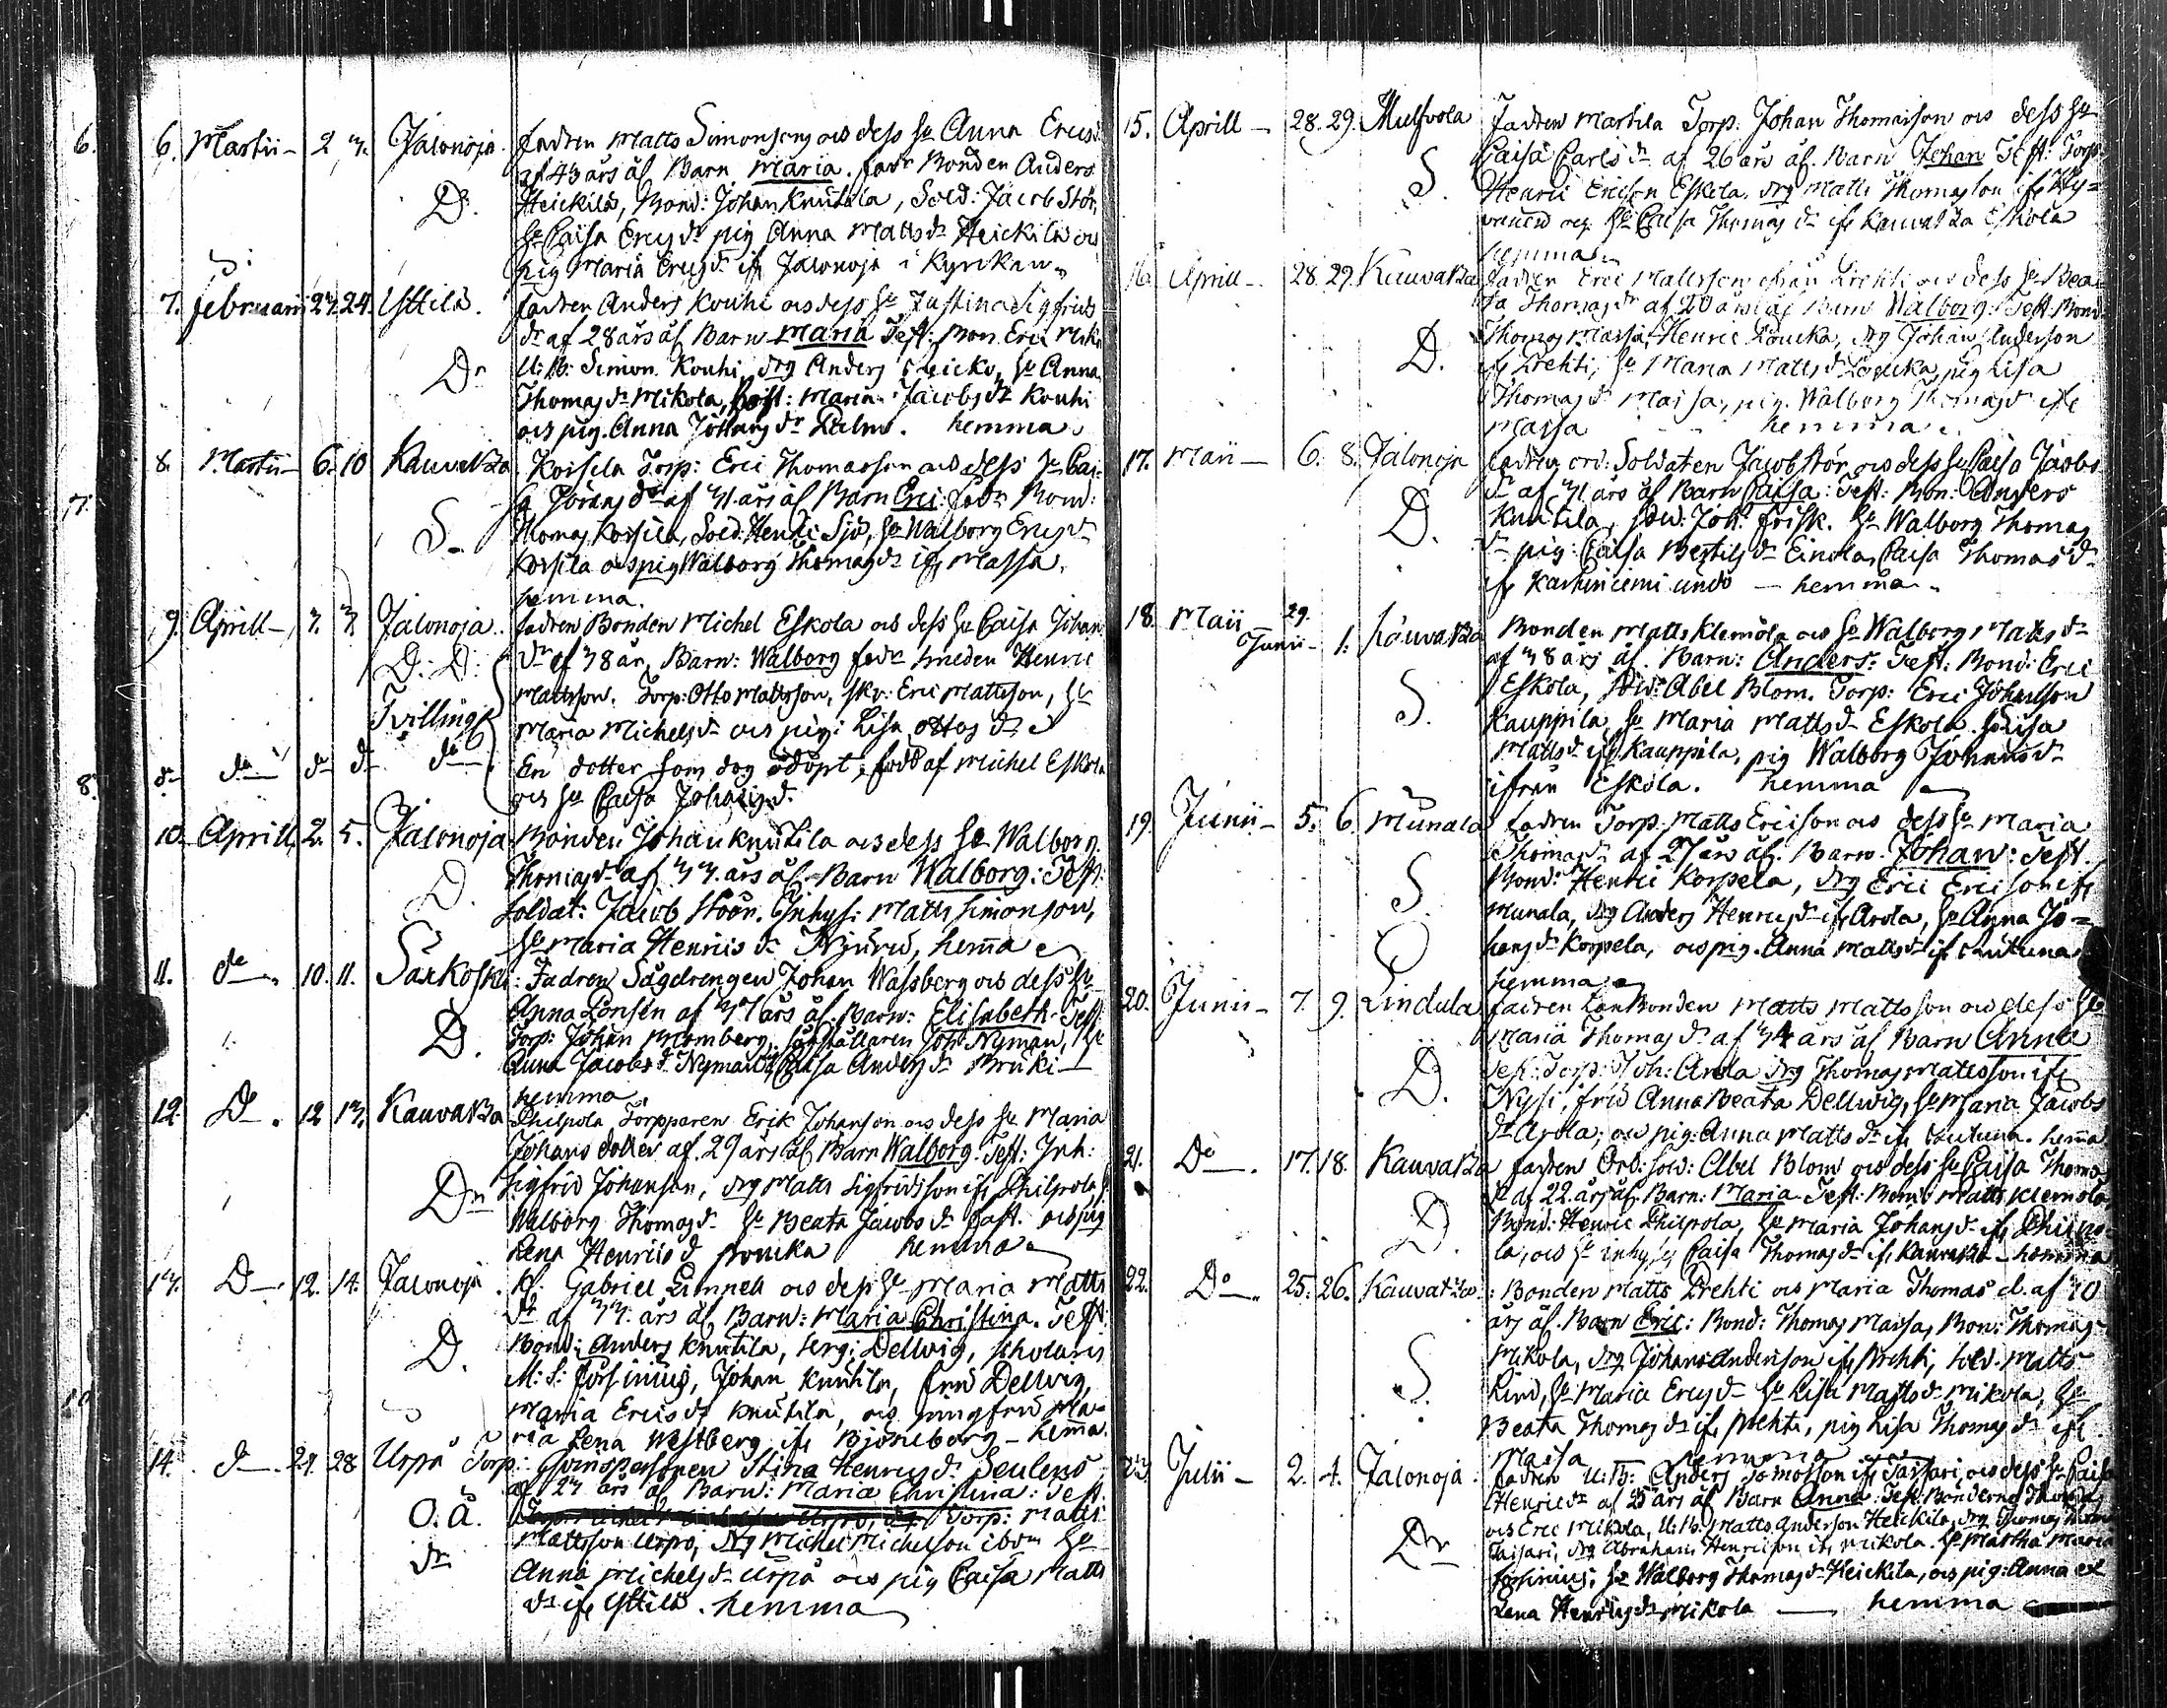 6. Martii - 2 3. Jalonoja. fadren Matts Simonsson och dess h. Anna Ericsd.
af 43 års ål. Barn Maria. fadr Bonden Anders
D. Heickilä, Bond: Johan Knutila, Sold: Jacob Stör,
h. Caisa Ericsdr pig Anna Mattsdr Heickilä och
pig Maria Ericsdr ifr Jalonoja i Kyrckan.
7. Februarii 23 24. Yttilä. fadren Anders Kouhi och dess h. Justina Sigfrids
dr af 28 års ål. Barn Maria Test: Bon. Eric Mik.
Dr U: B: Simon Kouhi, drg Anders h. Anna
Thomasdr Mikola, Maria Jacobsdr Kouhi
och pig. Anna Johansdr hemma.
8. Martii - 6. 10 Kauvatza Korsila Torp: Eric Thomasson och dess h. Cai-
sa Göransdr af 31 års ål Barn Eric: fadr Bond:
S. Thomas Korsila, Sold. Henric Sjö, h. Walborg Ericsdr
Korsila och pig Walborg Thomasdr ifr Massa.
hemma.
9. Aprill - 3. 3. Jalonoja. fadren Bonden Michel Eskola och dess h. Caisa Johans
D: D: dr af 38 år, Barn: Walborg fadr smeden Henric
Mattsson. Torp: Otto Mattsson, skr: Eric Mattsson, h.
Tvilling Maria Michelsdr och pig: Lisa Ottosdr
do do do do do En dotter som dog odöpt, född af Michel Eskola
och h. Caisa Johansd.
10. Aprill 2. 5. Jalonoja Bonden Johan Knutila och dess h. Walborg
D. Thomasdr af 33. års ål. Barn Walborg: Test:
Soldat: Jacob Stöör. Inhys: Matts Simonson,
h. Maria Henricsdr hemma
11. do. 10. 11. Säxkoski: Fadren Sågdrengen Johan Wassberg och dess h.
Anna Lönsén af 37 års ål. Barn: Elisabeth. Test:
D. Torp: Johan Bromberg, Joh: Nyman, h.
Anna Jacobsd. Nyman Caisa Andersdr Bruki -
hemma.
12 Do. 12 13. Kauvatza Philpola Torpparen Erik Johanson och dess h. Maria
Johans dotter af. 29 års ål Barn Walborg. Test: Inh:
Dn Sigfrid Johanson, drg Matts Sigfridsson ifr Philpola,
Walborg Thomasdr h. Beata Jacobsdr och pig
Lena Henricsd hemma
13. D. 12. 14. Jalonoja. H: Gabriel Linnell och dess h. Maria Matts
dr af 33. års ål. Barn: Maria Christina. Test:
D. Bond: Anders Knutila, Serg: Dellwig, Scholaris
M: S: Forsinius, Johan Knutila, fru Dellwig,
Maria Ericsdr Knutila, och jungfru Ma-
ria Lena Westberg ifr Björneborg - hemma.
14. d. 27. 28 Urpå Torp: Qvinspersonen Stina Henricsdr
af 23 års ål Barn: Maria Christina: Test.
O. Ä. Torp: Matts
dr Mattsson Urpå, drg Michel Michelsson ibdm h.
Anna Michelsdr Urpå och pig Caisa Matts
dr ifr Yttilä. hemma
15. Aprill - 28. 29. Mulfvola fadren Martila Torp: Johan Thomasson och dess h.
Caisa Carlsdr af 26 års ål. Barn Johan Test: Torp.
S. Henric Ericson Eskola. drg Matts Thomasson ifr
och h. Caisa Thomasdr ifr Kauvatza Eskola
hemma.
16. Aprill - 28. 29. Kauvatza fadren Eric Mattsson ifrån Prehti och dess h. Bea-
ta Thomasdr af 20 års ål Barn Walborg: Test: Bond.
D. Thomas Massa, Henric Louka, drg Johan Anderson
ifr Prehti, h. Maria Mattsd Louka, pig Lisa
Thomasd Massa, pig. Walborg Thomasd ifr
Massa hemma.
17. Maii - 6. 8. Jalonoja fadren ord: Soldaten Jacob Stör och dess h. Caisa Jacobs
dr af 31 års ål Barn Caisa: Test: Bon: Anders
D. Knutila, sold: Joh: Frisk. h. Walborg Thomas
dr pig: Caisa Bertilsdr Einola, Caisa Thomasdr
ifr Karhiniemi - hemma.
18. Maii 29. Junii - 1. Kauvatza Bonden Matts Klemola och h. Walborg Mattsdr
af 38 års ål. Barn: Anders: Test: Bond: Eric
S. Eskola, sold: Abel Blom. Torp: Eric Johansson
Kauppila, h. Maria Mattsdr Eskola. Lisa
Mattsdr ifr Kauppila, pig Walborg Johansdr
ifrån Eskola. hemma
19. Junii - 5. 6. Munala fadren Torp: Matts Ericson och dess h. Maria
Thomasdr af 27 års ål. Barn. Johan: Test.
S. Bond: Henric Korpela, drg Eric Ericson ifr
Munala, drg Anders Henricsd ifr Arola, h. Anna Jo-
hansdr Korpela, och pig. Anna Mattsdr ifr
hemma
20. Junii - 7. 9. Lindula fadren Lanbonden Matts Mattsson och dess h.
Maria Thomasdr af 34 års ål Barn Anna
D. Test: Torp: Joh: Arola drg Thomas Mattsson ifr
fru Anna Beata Dellwig, h. Maria Jacobs
dr Arola, och pig: Anna Mattsdr ifr hemma
21. Do. 17. 18. Kauvatza fadren Ord: sold: Abel Blom och dess h. Caisa Thomas
dr af 22. års ål. Barn: Maria. Test: Bond Matts Klemola
D. Bond: Henric Philpola, h. Maria Johansdr ifr Philpo-
la, och h. inhys: Caisa Thomasdr ifr Kauvatza - hemma
22. Do. 25. 26. Kauvatza: Bonden Matts Prehti och Maria Thomas d. af 30
års ål. Barn Eric: Bond: Thomas Massa, Bon: Thomas
S. Mikola, drg Johan Anderson ifr Prehti, sold. Matts
Lind, h. Maria Ericsdr h. Lisa Mattsdr Mikola, h.
Beata Thomasdr ifr Prehti, pig Lisa Thomasdr ifr
Massa hemma
23. Julii - 2. 4. Jalonoja: fadren U: B: Anders ifr Taisari, och dess h. Caisa
Henricdr af 25 års ål Barn Anna: Test: Bönderne Thomas
och Eric Mikola, U: B: Matts Anderson Heickilä, drg Thomas
Dr Taisari, drg Abraham Henricson ifr Mikola. h. Martha Maria
Forsinius, h. Walborg Thomasdr Heickilä, och pig: Anna
Lena Henricsdr Mikola - hemma
6. 7. 8. 10